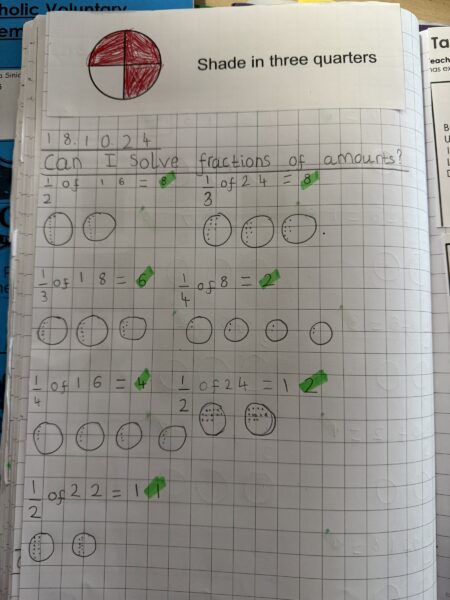 holic Voluntary
em
Ta
Shade in three quarters
18.10.24
Can I solve fractions of amounts?
1/2 of 16 = 8 1/3 of 24 = 8
1/3 of 18 = 6 1/4 of 8 = 2
1/4 of 16 = 4 1/2 of 24 = 12
1/2 of 22 = 11